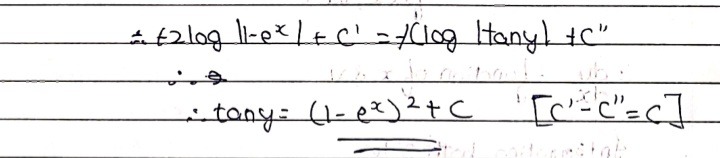 ∴ +2 log |1-eˣ| + C' = +(log |tany| + C"
∴
∴ tany = (1-eˣ)² + C [C'-C"=C]